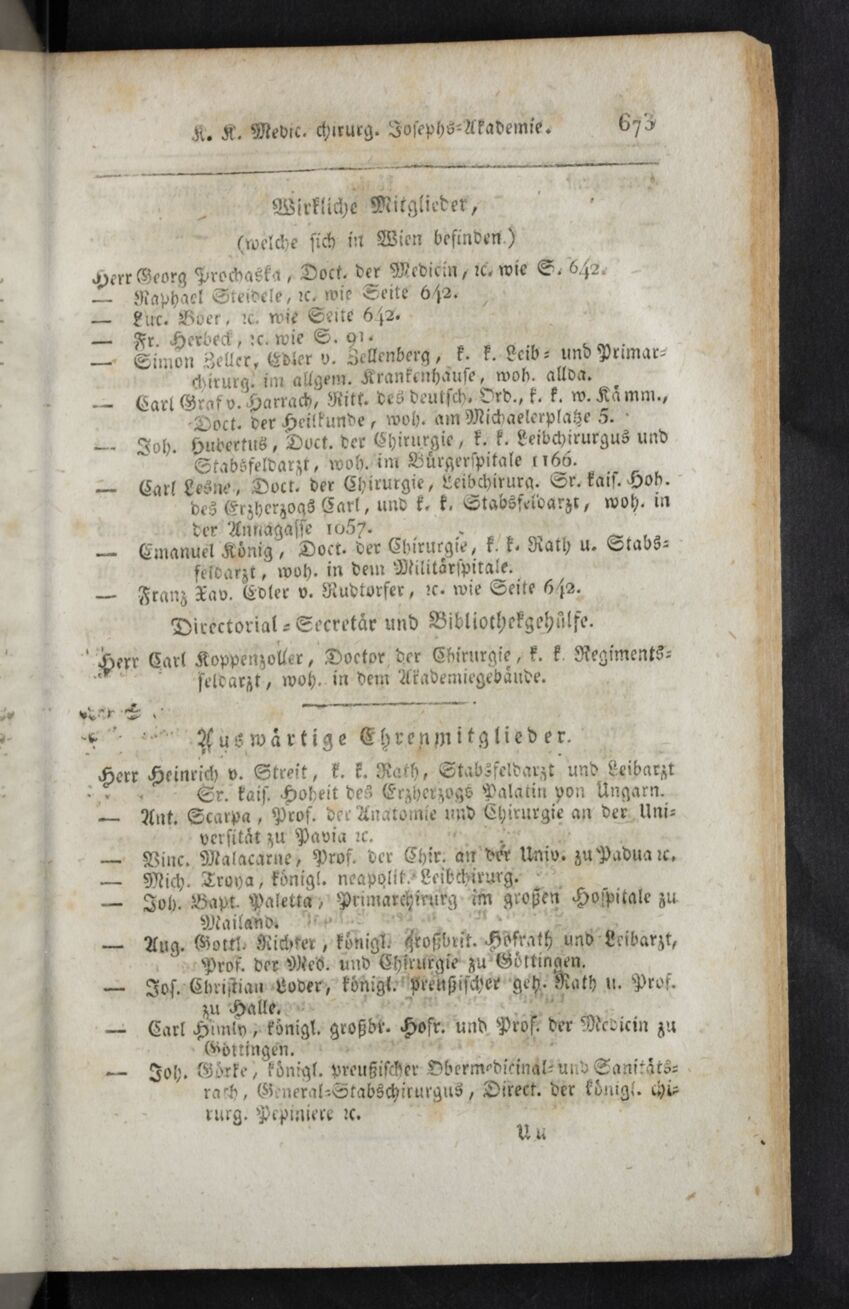 K. K. Medic. chirurg. Josephs-Akademie. 673
Wirkliche Mitglieder,
(welche sich in Wien befinden.)
Herr Georg Prochaska, Doct. der Medicin, ꝛc. wie S. 642.
— Raphael Steidele, ꝛc. wie Seite 642.
— Luc. Boer, ꝛc. wie Seite 642.
— Fr. Herbeck, ꝛc. wie S. 91.
— Simon Zeller, Edler v. Zellenberg, k. k. Leib- und Primar-
chirurg. im allgem. Krankenhause, woh. allda.
— Carl Graf v. Harrach, Ritt. des deutsch. Ord., k. k. w. Kämm.,
Doct. der Heilkunde, woh. am Michaelerplatze 5.
— Joh. Hubertus, Doct. der Chirurgie, k. k. Leibchirurgus und
Stabsfeldarzt, woh. im Bürgerspitale 1166.
— Carl Lesne, Doct. der Chirurgie, Leibchirurg. Sr. kais. Hoh.
des Erzherzogs Carl, und k. k. Stabsfeldarzt, woh. in
der Annagasse 1057.
— Emanuel König, Doct. der Chirurgie, k. k. Rath u. Stabs-
feldarzt, woh. in dem Militärspitale.
— Franz Xav. Edler v. Rudtorfer, ꝛc. wie Seite 642.
Directorial-Secretär und Bibliothekgehülfe.
Herr Carl Koppenzoller, Doctor der Chirurgie, k. k. Regiments-
feldarzt, woh. in dem Akademiegebäude.
Auswärtige Ehrenmitglieder.
Herr Heinrich v. Streit, k. k. Rath, Stabsfeldarzt und Leibarzt
Sr. kais. Hoheit des Erzherzogs Palatin von Ungarn.
— Ant. Scarpa, Prof. der Anatomie und Chirurgie an der Uni-
versität zu Pavia ꝛc.
— Vinc. Malacarne, Prof. der Chir. an der Univ. zu Padua ꝛc.
— Mich. Troya, königl. neapolit. Leibchirurg.
— Joh. Bapt. Paletta, Primarchirurg im großen Hospitale zu
Mailand.
— Aug. Gottl. Richter, königl. großbrit. Hofrath und Leibarzt,
Prof. der Med. und Chirurgie zu Göttingen.
— Jos. Christian Loder, königl. preußischer geh. Rath u. Prof.
zu Halle.
— Carl Himly, königl. großbr. Hofr. und Prof. der Medicin zu
Göttingen.
— Joh. Görke, königl. preußischer Obermedicinal- und Sanitäts-
rath, General-Stabschirurgus, Direct. der königl. chi-
rurg. Pepiniere ꝛc.
Uu